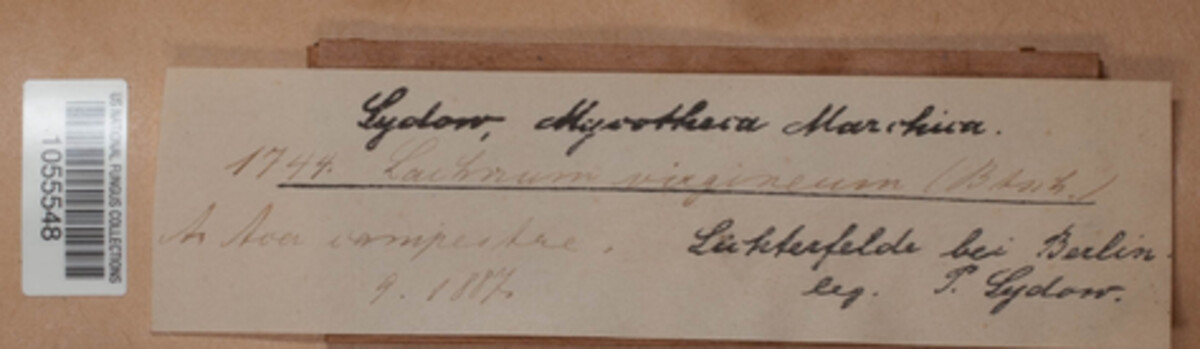 US NATIONAL FUNGUS COLLECTIONS
1055548
Sydow, Mycotheca Marchica.
1744. Lachnum virgineum (Batsch.)
An Acer campestre.
9. 1887.
Lichterfelde bei Berlin.
leg. P. Sydow.